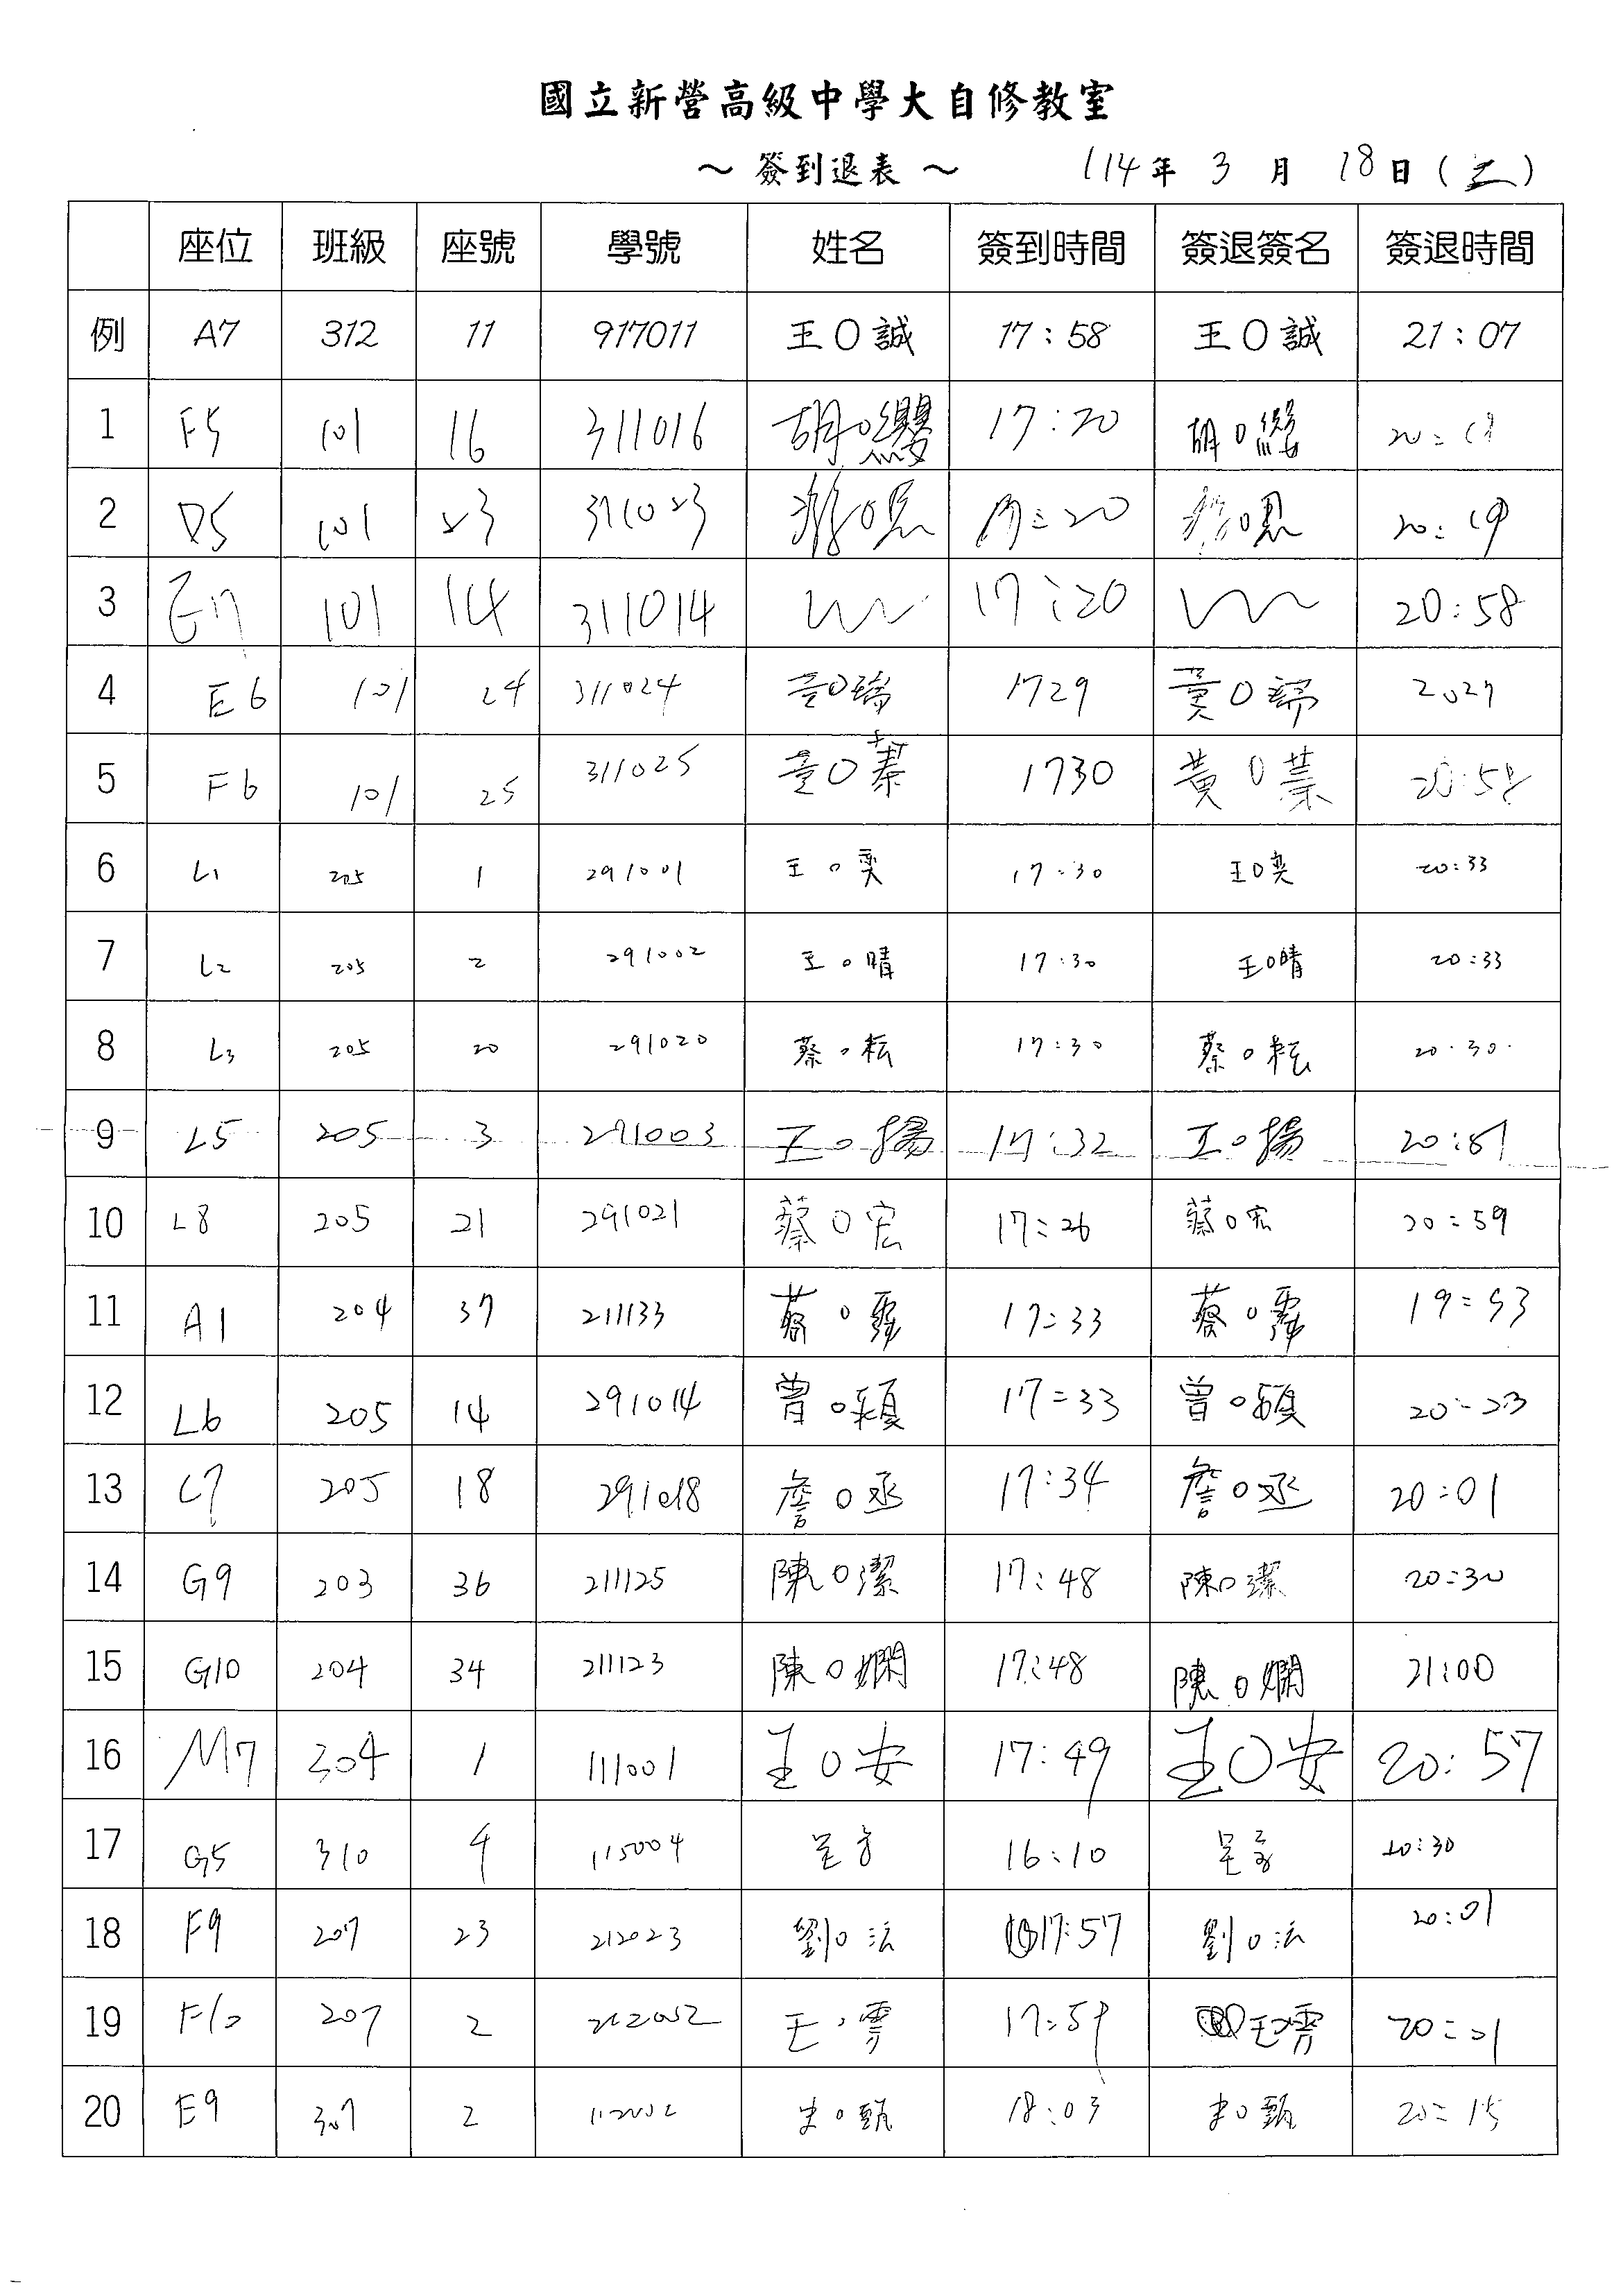 國立新營高級中學大自修教室
～ 簽到退表 ～ 114年 3 月 18日 (二)
座位 班級 座號 學號 姓名 簽到時間 簽退簽名 簽退時間
例 A7 312 11 917011 王O誠 17:58 王O誠 21:07
1 F5 101 16 311016 胡O纓 17:20 胡O纓
2 D5 101 23 311023 17:20 20:19
3 E7 101 14 311014 17:20 20:58
4 E6 101 24 311024 黃O瑞 1729 黃O 2027
5 F6 101 25 311025 黃O蓁 1730 黃O蓁 20:58
6 L1 205 1 291001 王O奕 17:30 王O奕 20:33
7 L2 205 2 291002 王O晴 17:30 王O晴 20:33
8 L3 205 20 291020 蔡O耘 17:30 蔡O耘 20:30
9 L5 205 3 291003 王O揚 17:32 王O揚 20:51
10 L8 205 21 291021 蔡O宏 17:26 蔡O宏 20:59
11 A1 204 37 211133 蔡O霏 17:33 蔡O霏 19:53
12 L6 205 14 291014 曾O穎 17:33 曾O穎 20:23
13 L7 205 18 291018 詹O丞 17:34 詹O丞 20:01
14 G9 203 36 211125 陳O潔 17:48 陳O潔 20:30
15 G10 204 34 211123 陳O嫻 17:48 陳O嫻 21:00
16 M7 304 1 111001 王O安 17:49 王O安 20:57
17 G5 310 4 115004 16:10 20:30
18 F9 207 23 212023 劉O法 17:57 劉O法 20:01
19 F10 207 2 212002 王O雱 17:59 王O雱 20:01
20 E9 307 2 112002 18:03 20:15